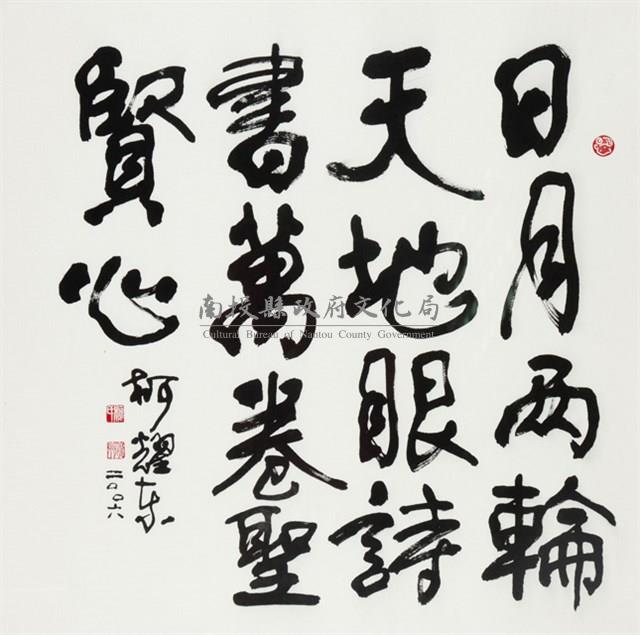 日月两輪
天地眼詩
書萬卷聖
賢心
柯耀东
二〇〇六
南投縣政府文化局
Cultural Bureau of Nantou County Government